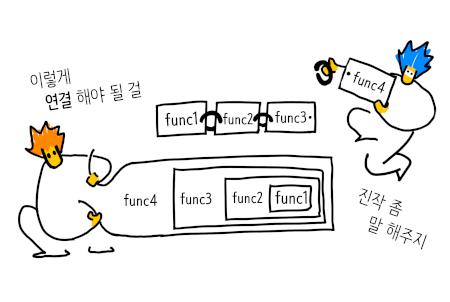 이렇게
연결 해야 될 걸
func1
func2
func3
func4
func4
func3
func2
func1
진작 좀
말 해주지